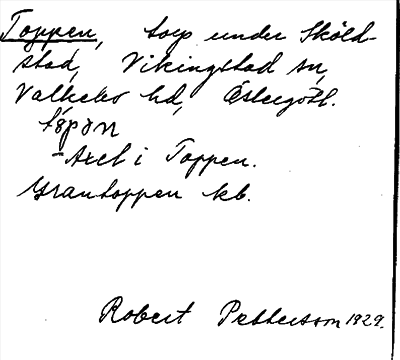 Toppen, torp under Sköld-
stad, Vikingstad sn,
Valkebo hd, Östergötl.
tɔpən
-Axel i Toppen.
Grantoppen kb.
Robert Pettersson 1929.